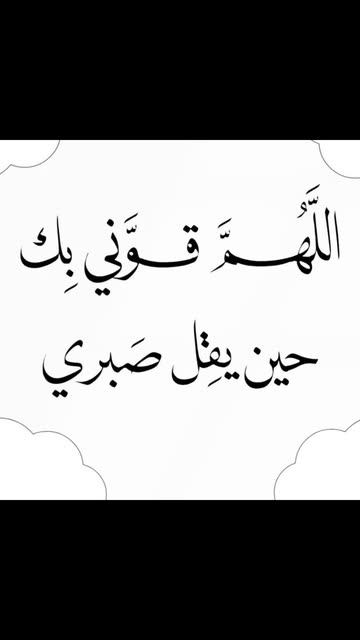 اللَّهُمَّ قوَّني بِك
حين يقِل صَبري